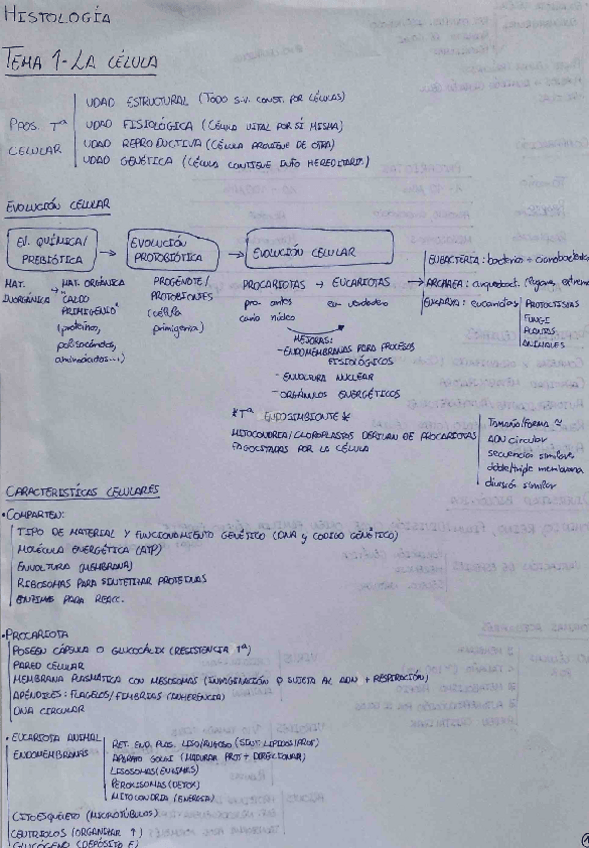 HISTOLOGÍA
TEMA 1- LA CÉLULA
POOS. Tª CELULAR
UDAD ESTRUCTURAL (TODO S.V. CONST. POR CÉLULAS)
UDAD FISIOLÓGICA (CÉLULA VITAL POR SÍ MISMA)
UDAD REPRODUCTIVA (CÉLULA PROVIENE DE OTRA)
UDAD GENÉTICA (CÉLULA CONTIENE INFO HEREDITARIA)
EVOLUCIÓN CELULAR
EV. QUÍMICA/ PREBIÓTICA → EVOLUCIÓN PROTOBIÓTICA → EVOLUCIÓN CELULAR
MAT. INORGÁNICA → MAT. ORGÁNICA
"CALDO PRIMIGENIO"
(proteínas, polisacáridos, aminoácidos...)
PROGENOTE/ PROTOBIONTES
(célula primigenia)
PROCARIOTAS → EUCARIOTAS →
pro- antes
cario núcleo
eu- verdadero
EUBACTERIA: bacterias + cianobacterias
ARCHAEA: arquebact.
EUKARYA: eucariotas
PROTOCTISTAS
FUNGI
PLANTAS
ANIMALES
MEJORAS:
- ENDOMEMBRANAS PARA PROCESOS FISIOLÓGICOS
- ENVOLTURA NUCLEAR
- ORGÁNULOS ENERGÉTICOS
*Tª ENDOSIMBIONTE*
MITOCONDRIA/CLOROPLASTOS DERIVAN DE PROCARIOTAS
FAGOCITADAS POR LA CÉLULA
Tamaño/forma ≈
ADN circular
secuencias similares
doble/triple membrana
división similar
CARACTERISTÍCAS CELULARES
• COMPARTEN:
TIPO DE MATERIAL Y FUNCIONAMIENTO GENÉTICO (DNA y CODIGO GENÉTICO)
MOLÉCULA ENERGÉTICA (ATP)
ENVOLTURA (MEMBRANA)
RIBOSOMAS PARA SINTETIZAR PROTEINAS
ENZIMAS PARA REACC.
• PROCARIOTA
POSEEN CÁPSULA O GLUCOCÁLIX (RESISTENCIA Tª)
PARED CÉLULAR
MEMBRANA PLASMÁTICA CON MESOSOMAS (INVAGINACIÓN Q SUJETA AL ADN + RESPIRACIÓN)
APÉNDICES: FLAGELOS/FIMBRIAS (ADHERENCIA)
DNA CIRCULAR
• EUCARIOTA ANIMAL
ENDOMEMBRANAS
RET. END. PLAS. LISO/RUGOSO (SINT. LÍPIDOS/PROT)
APARATO GOLGI (MADURAR PROT + DIRECCIONAR)
LISOSOMAS (ENZIMAS)
PEROXISOMAS (DETOX)
MITOCONDRIA (ENERGÍA)
CITOESQUELETO (MICROTÚBULOS)
CENTRIOLOS (ORGANIZAR ↑)
GLUCÓGENO (DEPÓSITO E)
1